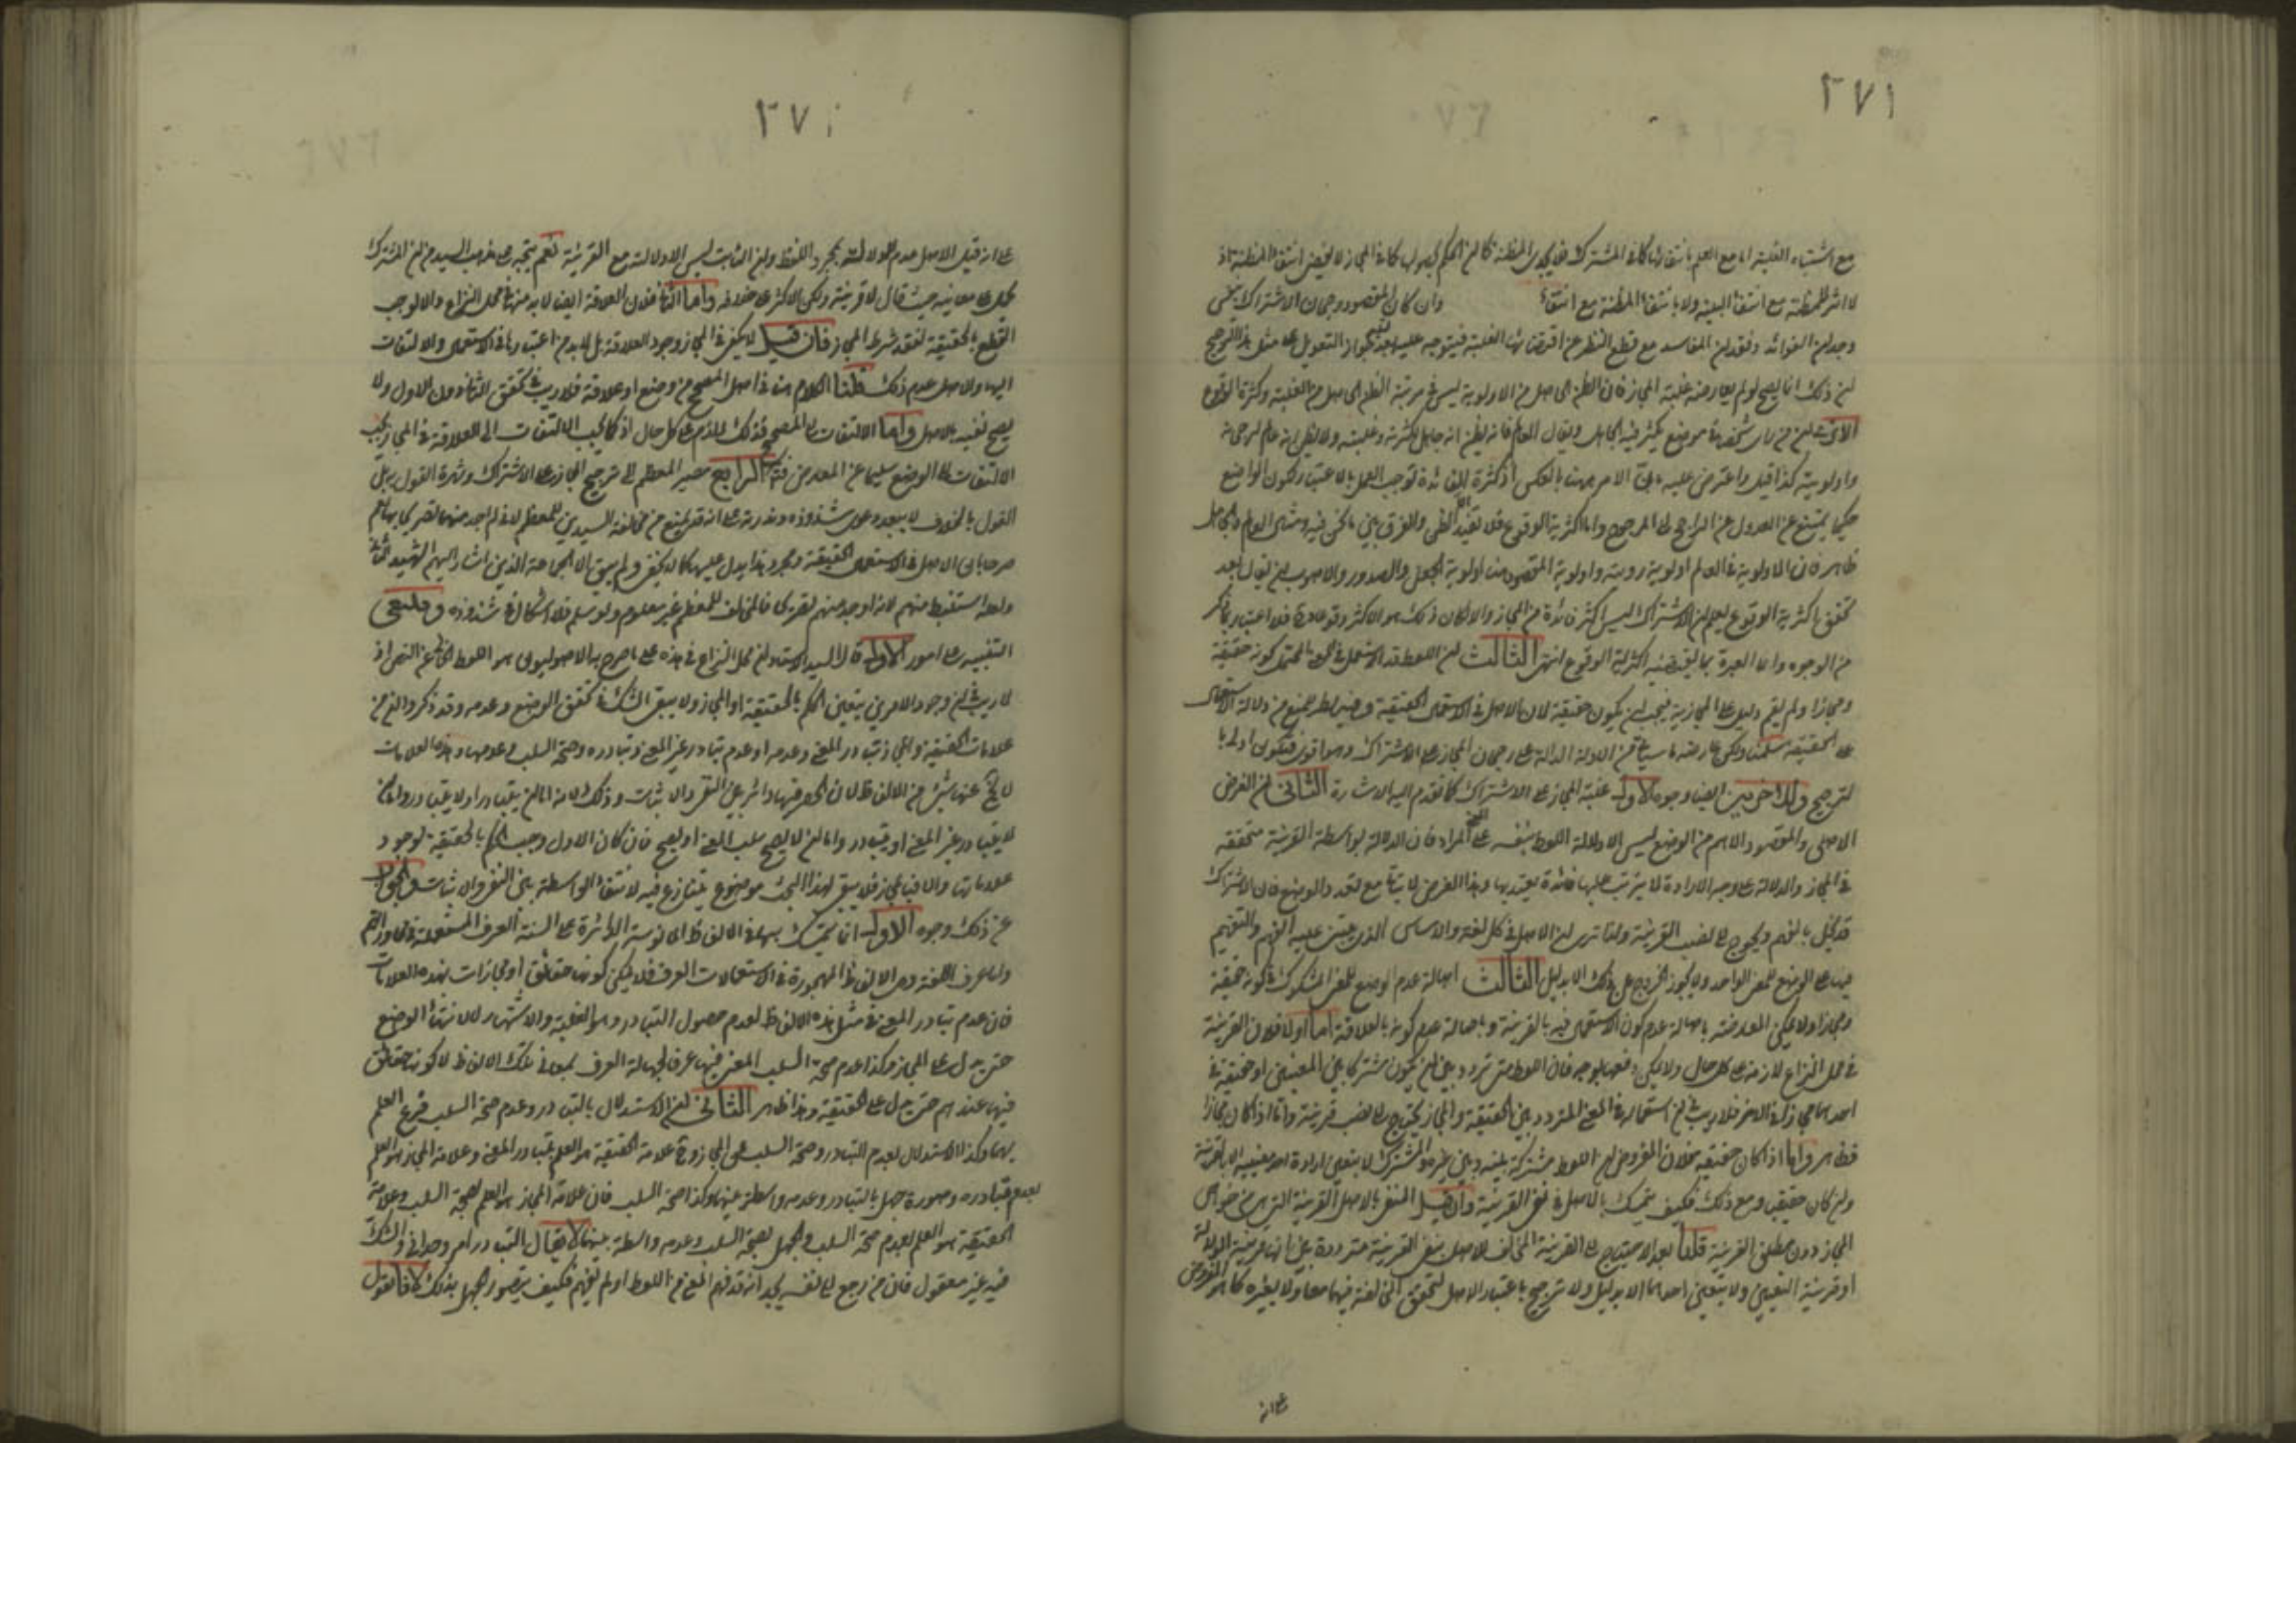 ٢٧١
مع اشتباه الغلبة اما مع العلم بانتفائها كما في المشترك فلا يجدي المظنة كما ان الحكم كما في المجاز لا يقتضي انتفاء المظنة اذ
لا اثر للمظنة مع انتفاء ولا بانتفاء المظنة مع انتفاء وان كان المقصود رجحان الاشتراك
وجدان الفوائد وفقدان المفاسد مع قطع النظر عن الغلبة فيتوجه عليه بعد جواز التعويل على مثل هذا الترجيح
ان ذلك انما يصح لو لم يعارضه غلبة المجاز فان الظن الحاصل من الاولوية ليس في مرتبة الظن الحاصل من الغلبة وكثرة الوقوع
الا ترى ان من راى شخصا في موضع يكثر فيه الجاهل ويقل العالم فانه يظن انه جاهل لكثرته وغلبته ولا يظن انه عالم لرجحانه
واولويته كذا قيل واعترض عليه بان الامر ههنا بالعكس اذ كثرة الفائدة توجب العمل بالاعتبار لكون الواضع
حكيما يمتنع عن العدول عن الراجح الى المرجوح واما اكثرية الوقوع فلا تفيد الا الظن والفرق بين ما نحن فيه ومثال العالم والجاهل
ظاهر فان الاولوية في العالم اولوية رتبة واولوية المقصود هنا اولوية الجعل والصدور والاصوب ان يقال بعد
تحقق اكثرية الوقوع يعلم ان الاشتراك ليس اكثر فائدة من المجاز والا لكان ذلك هو الاكثر وقوعا فلا اعتبار بما ذكر
من الوجوه وانما العبرة بما يقتضيه اكثرية الوقوع انتهى الثالث ان اللفظ قد استعمل في المحتمل كونه حقيقة
ومجازا ولم يقم دليل على المجازية فيجب ان يكون حقيقة لان الاصل في الاستعمال الحقيقة وفيه نظر لمنع من دلالة الاستعمال
على الحقيقة سلمنا ولكن عارضه ما سياتي من الادلة الدالة على رجحان المجاز على الاشتراك وهو اقوى فتكون اولى با
لترجيح وللاخرين ايضا وجوه الاول غلبة المجاز على الاشتراك كما تقدم اليه الاشارة الثاني ان الغرض
الاصلي والمقصود الاهم من الوضع ليس الا دلالة اللفظ بنفسه على المعنى المراد فان الدلالة بواسطة القرينة متحققة
في المجاز والدلالة على وجه الارادة لا يترتب عليها فائدة يعتد بها وهذا الغرض لا يتاتى مع تعدد الوضع فان الاشتراك
قد يخل بالفهم ويحوج الى نصب القرينة ولذا ترى ان الاصل في كل لغة والاساس الذي يبتنى عليه الفهم والتفهيم
فيها على الوضع للمعنى الواحد ولا يجوز الخروج عن ذلك الا بدليل الثالث اصالة عدم الوضع للمعنى المشكوك في كونه حقيقة
ومجازا ولا يمكن المعارضة باصالة عدم كون الاستعمال فيه بالقرينة وباصالة عدم كونه بالعلاقة اما اولا فلان القرينة
في محل النزاع لازمة على كل حال ولا يمكن دفعها بوجه فان اللفظ متى تردد بين ان يكون مشتركا بين المعنيين او حقيقة في
احدهما مجازا في الاخر فلا ريب في ان استعماله في المعنى المتردد بين الحقيقة والمجاز يحتاج الى نصب قرينة واما اذا كان مجازا
فظاهر واما اذا كان حقيقة فلان المفروض ان اللفظ مشترك بينه وبين غيره والمشترك لا يتعين ارادة احد معنييه الا بقرينة
وان كان حقيقيا ومع ذلك فكيف يتمسك بالاصل في نفي القرينة وان قيل المنفي بالاصل القرينة التي هي من خواص
المجاز دون مطلق القرينة قلنا بعد الاحتياج الى القرينة المخالف للاصل نفي القرينة مترددة بين انها قرينة الدلالة
او قرينة التعيين ولا يتعين احدهما الا بدليل ولا ترجيح باعتبار الاصل لتحقق المخالفة فيهما معا ولا بغيره كما هو المفروض
على انه
٢٧٠
على انه قيل الاصل عدم الدلالة بمجرد اللفظ وان الثابت ليس الا دلالته مع القرينة نعم يتجه على مذهب السيد من ان المشترك
يحمل على معانيه حيث يقال لا قرينة ولكن الاكثر على خلافه واما الثاني فلان العلاقة ايضا لا بد منها في محل النزاع والا لوجب
القطع بالحقيقة لفقد شرط المجاز فان قيل لا يكفي في المجاز وجود العلاقة بل لا بد من اعتبارها في الاستعمال والالتفات
اليها والاصل عدم ذلك قلنا الكلام هنا في اصل المصحح من وضع او علاقة فلا ريب في تحقق الثاني دون الاول ولا
يصح نفيه بالاصل واما الالتفات الى المصحح فذلك لازم على كل حال اذ كما يجب الالتفات الى العلاقة في المجاز يجب
الالتفات الى الوضع سليما عن المعارض فتم الرابع مصير المعظم الى ترجيح المجاز على الاشتراك وشهرة القول به بل
القول بالخلاف لا يبعد دعوى شذوذه وندرته على انه قد يمنع من مخالفة السيدين للمعظم لانه لم نجد منهما تصريحا بها نعم
صرحا بان الاصل في الاستعمال الحقيقة ومجرد هذا لا يدل عليها كما لا يخفى ولم يبق الا الجماعة الذين اشار اليهم الشهيد الثاني
ولعله استنبط منهم لا انه وجد منهم تصريحا فالمخالف للمعظم غير معلوم ولو سلم فلا اشكال في شذوذه وينبغي
التنبيه على امور الاول قال السيد الاستاد ان محل النزاع في هذه على ما صرح به الاصوليون هو اللفظ الخالي عن النص اذ
لا ريب في ان وجود الامرين يتعين الحكم بالحقيقة او المجاز ولا يبقى الشك في تحقق الوضع وعدمه وقد ذكروا ان من
علامات الحقيقة والمجاز تبادر المعنى وعدمه او عدم تبادر غير المعنى وتبادره وصحة السلب وعدمها وهذه العلامات
لا يخلو عنها شيء من الالفاظ لان الحصر فيها دائر بين النفي والاثبات وذلك لانه اما ان يتبادر او لا يتبادر واما ان
لا يتبادر غير المعنى او يتبادر واما ان لا يصح سلب المعنى او يصح فان كان الاول وجب الحكم بالحقيقة لوجود
علاماتها والا فبالمجاز فلا يبقى لهذا البحث موضوع يتنازع فيه لانتفاء الواسطة بين النفي والاثبات والجواب
عن ذلك وجوه الاول انا نتمسك بها في الالفاظ المانوسة الدائرة على السنة العرف المستعملة في محاوراتهم
واما عرف اللغة وهي الالفاظ المهجورة في الاستعمالات العرفية فلا يمكن كونها حقائق او مجازات بهذه العلامات
فان عدم تبادر المعنى في مثل هذه الالفاظ لعدم حصول التبادر وهو الغلبة والاشتهار لا لانتفاء الوضع
حتى يدل على المجاز وكذا عدم صحة السلب المعتبر فيها عرفا لجهالة العرف بمعاني تلك الالفاظ لا كونها حقائق
فيها عندهم حتى يدل على الحقيقة وهذا ظاهر الثاني ان الاستدلال بالتبادر وعدم صحة السلب فرع العلم
بهما وكذا الاستدلال بعدم التبادر وصحة السلب على المجاز وعلامة الحقيقة هو العلم بتبادر المعنى وعلامة المجاز هو العلم
بعدم تبادره وصورة جهل بالتبادر وعدمه واسطة بينهما وكذا صحة السلب فان علامة المجاز هو العلم بصحة السلب وعلامة
الحقيقة هو العلم بعدم صحة السلب والجهل بصحة السلب وعدمه واسطة بينهما لا يقال التبادر امر وجداني والشك
فيه غير معقول فان من رجع الى نفسه يجد انه قد فهم المعنى من اللفظ او لم يفهم فكيف يتصور الجهل بذلك لانا نقول